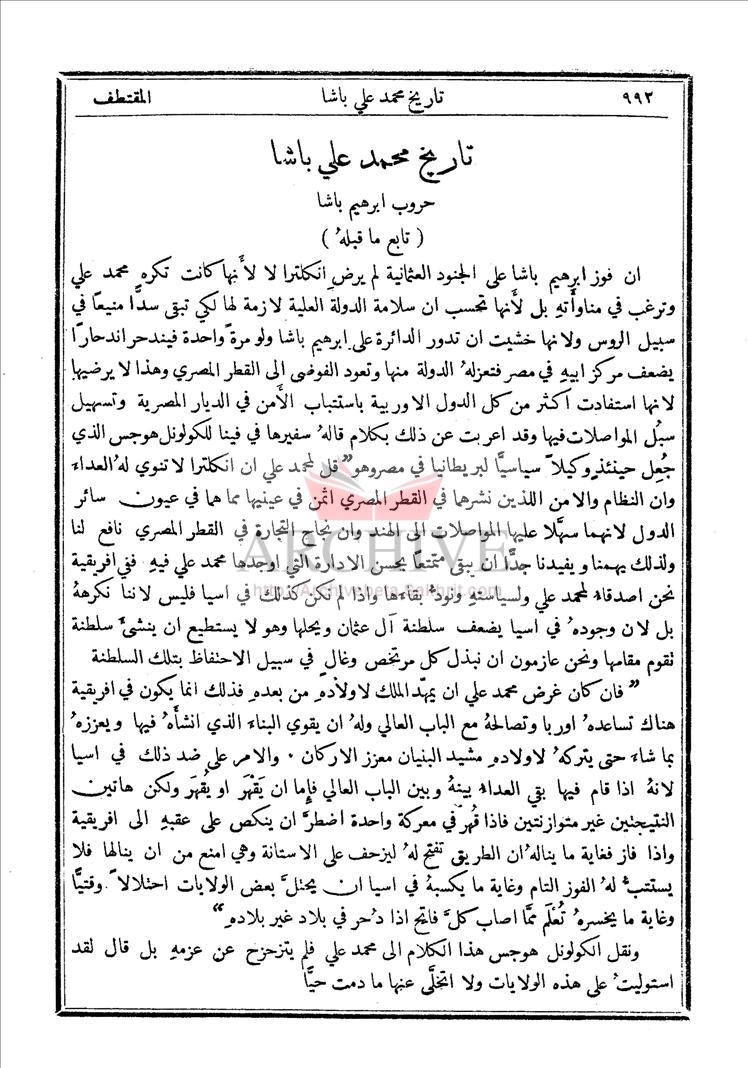 ٩٩٢ تاريخ محمد علي باشا المقتطف
تاريخ محمد علي باشا
حروب ابرهيم باشا
( تابع ما قبلهُ )
ان فوز ابرهيم باشا على الجنود العثمانية لم يرضِ انكلترا لا لأنها كانت تكره محمد علي
وترغب في مناوأتهِ بل لأنها تحسب ان سلامة الدولة العلية لازمة لها لكي تبقى سدًّا منيعًا في
سبيل الروس ولانها خشيت ان تدور الدائرة على ابرهيم باشا ولو مرةً واحدة فيندحر اندحارًا
يضعف مركز ابيهِ في مصر فتعزلهُ الدولة منها وتعود الفوضى الى القطر المصري وهذا لا يرضيها
لانها استفادت اكثر من كل الدول الاوربية باستتباب الأمن في الديار المصرية وتسهيل
سبُل المواصلات فيها وقد اعربت عن ذلك بكلام قالهُ سفيرها في فينا للكولونل هوجس الذي
جُعِل حينئذٍ وكيلاً سياسيًّا لبريطانيا في مصر وهو " قل لمحمد علي ان انكلترا لا تنوي لهُ العداء
وان النظام والامن اللذين نشرهما في القطر المصري اثمن في عينيها مما هما في عيون سائر
الدول لانهما سهَّلا عليها المواصلات الى الهند وان نجاح التجارة في القطر المصري نافع لنا
ولذلك يهمنا ويفيدنا جدًّا ان يبقى متمتعًا بحسن الادارة التي اوجدها محمد علي فيهِ ففي افريقية
نحن اصدقاءٌ لمحمد علي ولسياستهِ ونودُّ بقاءها واذا لم نكن كذلك في اسيا فليس لاننا نكرههُ
بل لان وجودهُ في اسيا يضعف سلطنة آل عثمان ويحلها وهو لا يستطيع ان ينشئَ سلطنة
تقوم مقامها ونحن عازمون ان نبذل كل مرتخص وغالٍ في سبيل الاحتفاظ بتلك السلطنة
" فان كان غرض محمد علي ان يمهّد الملك لاولادهِ من بعدهِ فذلك انما يكون في افريقية
هناك تساعدهُ اوربا وتصالحهُ مع الباب العالي ولهُ ان يقوي البناء الذي انشأهُ فيها ويعززهُ
بما شاءَ حتى يتركهُ لاولادهِ مشيد البنيان معزز الاركان . والامر على ضد ذلك في اسيا
لانهُ اذا قام فيها بقي العداءُ بينهُ وبين الباب العالي فإما ان يَقْهَر او يُقهَر ولكن هاتين
النتيجتين غير متوازنتين فاذا قُهر في معركة واحدة اضطرَّ ان ينكص على عقبهِ الى افريقية
واذا فاز فغاية ما ينالهُ ان الطريق تفتح لهُ ليزحف على الاستانة وهي امنع من ان ينالها فلا
يستتبُّ لهُ الفوز التام وغاية ما يكسبهُ في اسيا ان يحتلَّ بعض الولايات احتلالاً وقتيًّا
وغاية ما يخسرهُ تُعْلَم ممَّا اصاب كلَّ فاتح اذا دُحر في بلاد غير بلادهِ "
ونقل الكولونل هوجس هذا الكلام الى محمد علي فلم يتزحزح عن عزمهِ بل قال لقد
استوليتُ على هذه الولايات ولا اتخلَّى عنها ما دمت حيًّا
ARCHIVE